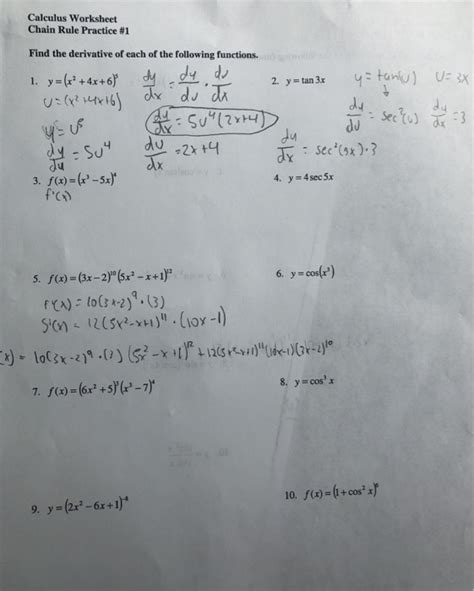 Calculus Worksheet
Chain Rule Practice #1
Find the derivative of each of the following functions.
1. y=(x²+4x+6)⁵ dy/dx = dy/du · du/dx
U=(x²+4x+6)
dy/dx = 5U⁴(2x+4)
y = U⁵
dy/du = 5U⁴ du/dx = 2x+4
2. y = tan 3x y = tan(U) U = 3x
dy/dU = sec²(U) dy/dx = 3
3. f(x)=(x³−5x)⁴
f'(x)
4. y = 4 sec 5x
5. f(x)=(3x−2)¹⁰(5x²−x+1)¹²
F'(x) = 10(3x-2)⁹·(3)
S'(x) = 12(5x²-x+1)¹¹·(10x-1)
(x) = 10(3x-2)⁹·(3)
6. y = cos(x³)
7. f(x)=(6x²+5)³(x³−7)⁴
8. y = cos³ x
9. y=(2x²−6x+1)⁻⁸
10. f(x)=(1+cos² x)⁶